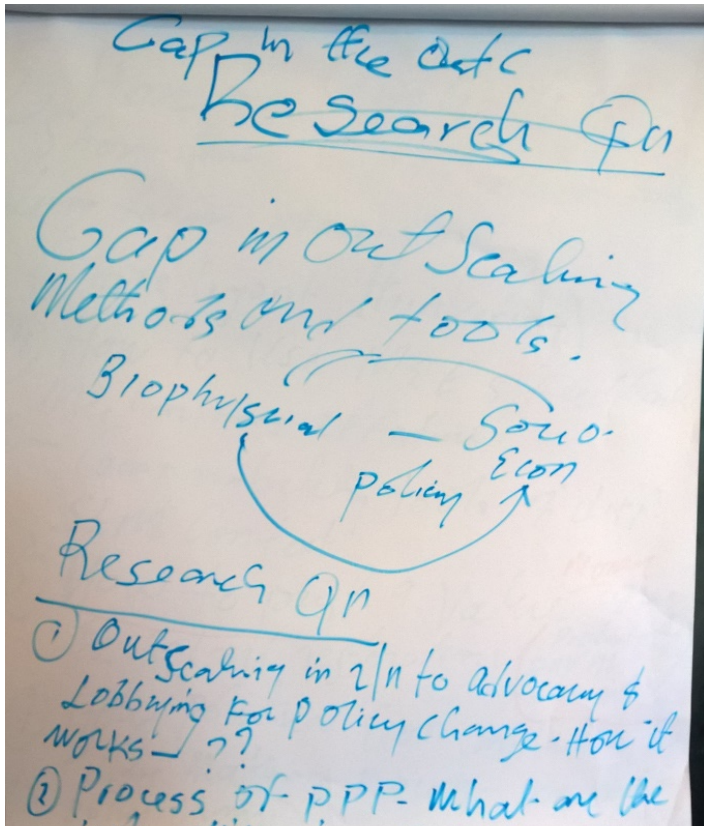 Gap in the outc
Research Qn
Gap in out Scaling
Methods and tools.
Biophysical — Socio-
Econ
policy
Research Qn
① Out Scaling in r/n to advocacy &
Lobbying For policy change - How it
works - ??
② Process of PPP - What are the